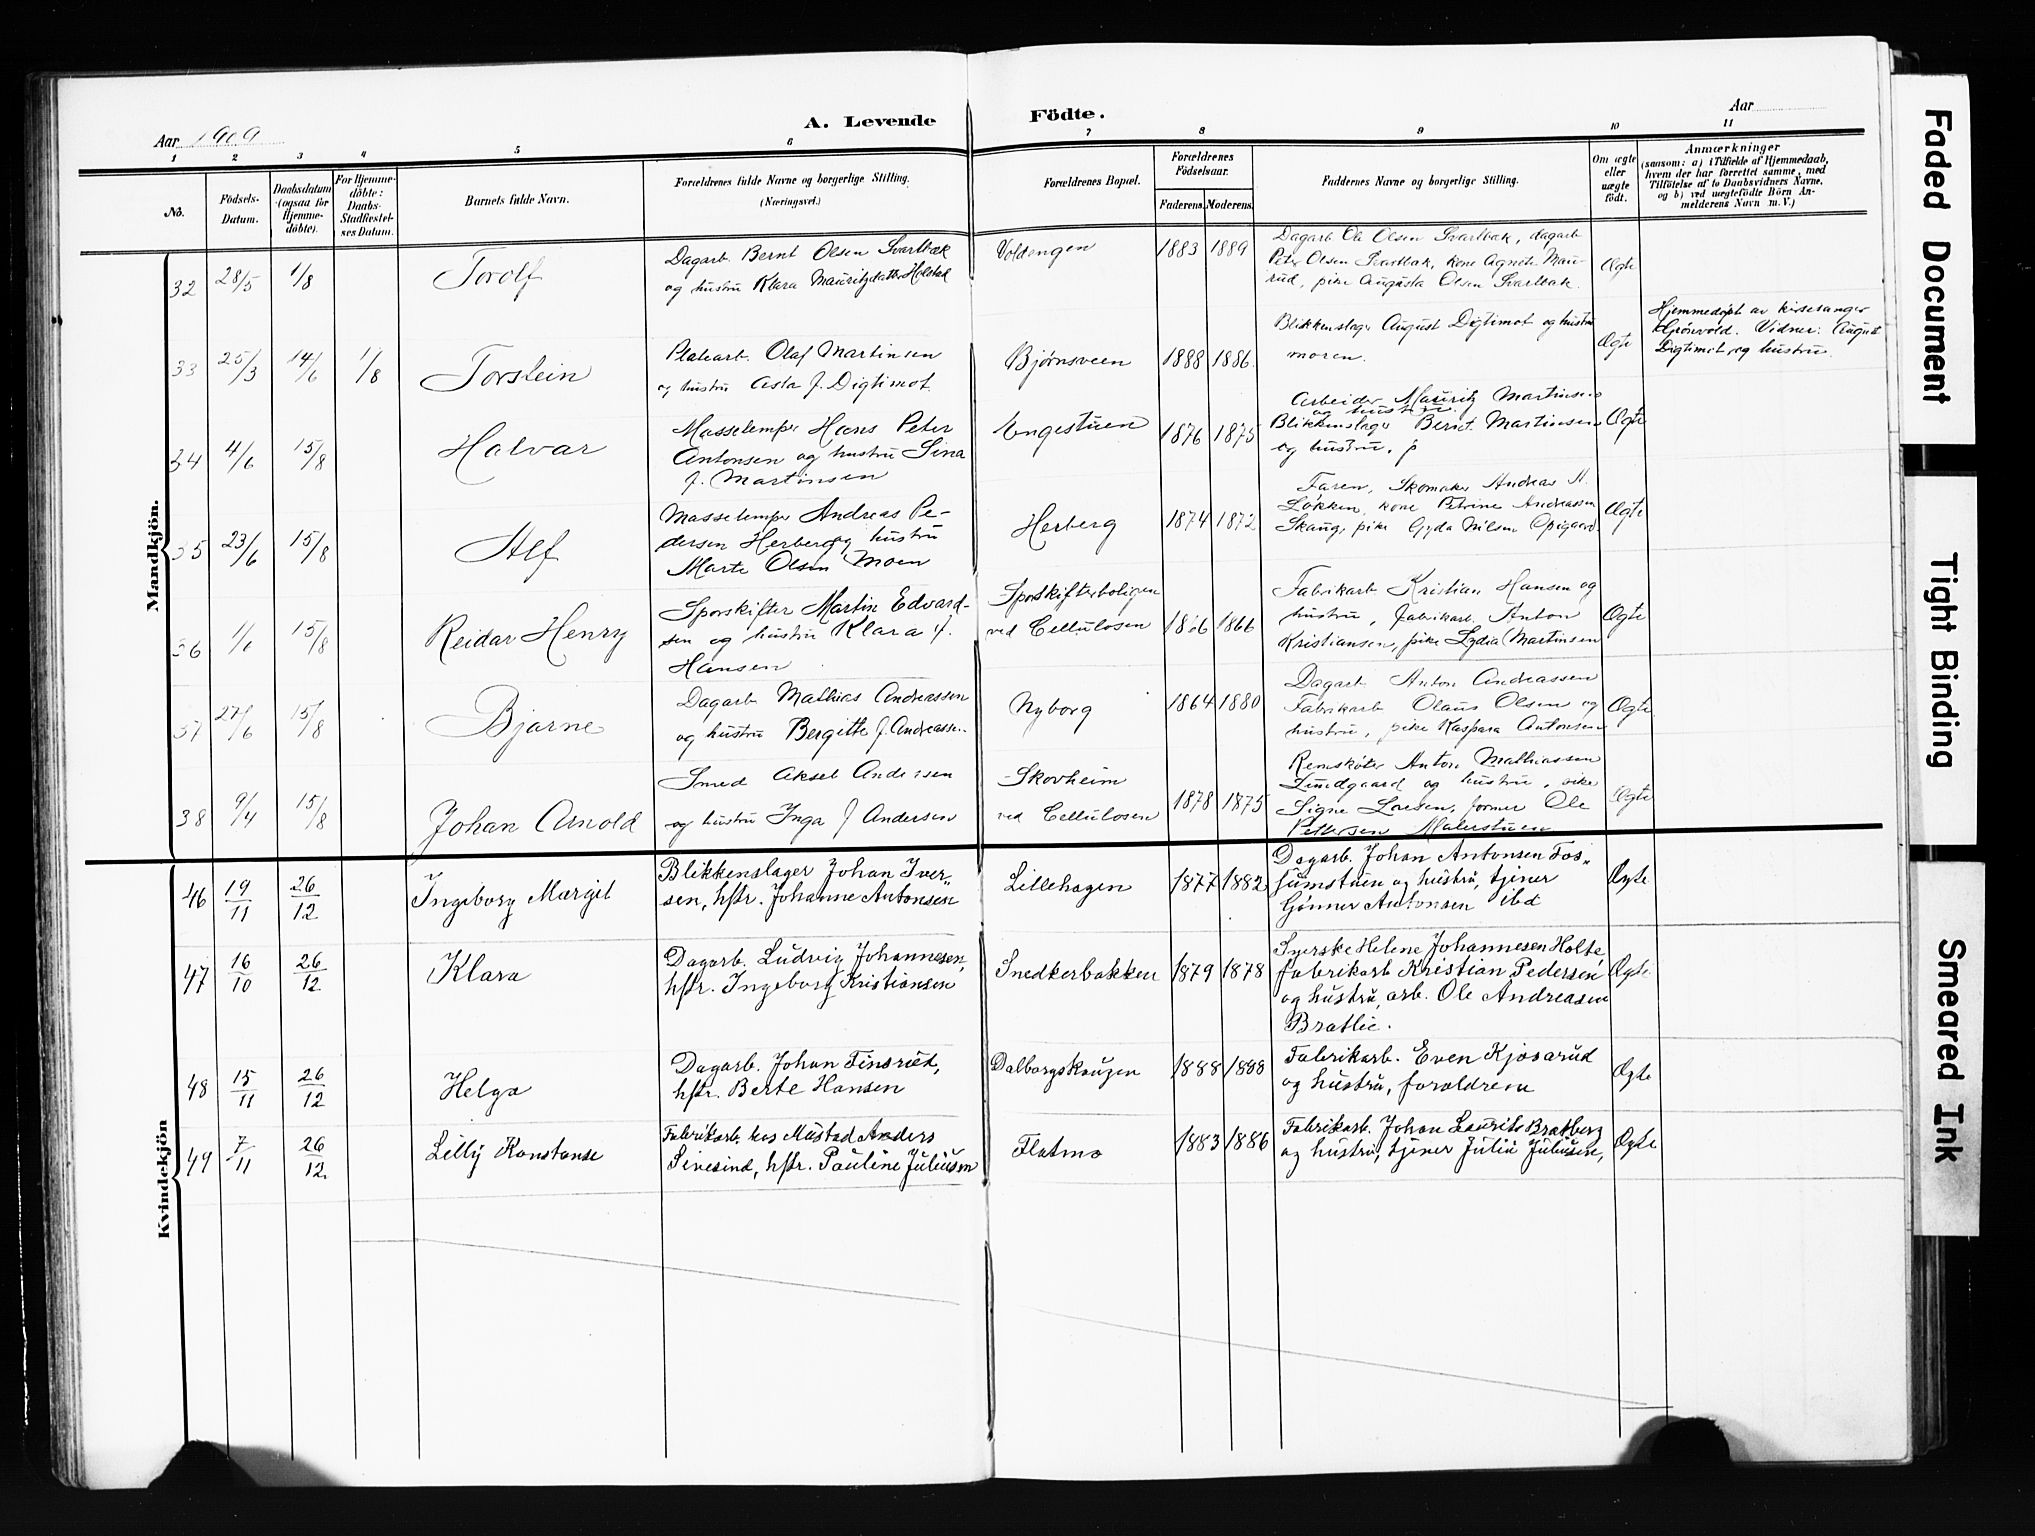 Aar 1909
A. Levende Födte.
Aar
1 2 3 4 5 6 7 8 9 10 11
No.
Födsels-Datum.
Daabsdatum (ogsaa for Hjemme-döbte).
For Hjemme-döbte: Daabs-Stadfæstel-ses Datum.
Barnets fulde Navn.
Forældrenes fulde Navne og borgerlige Stilling.
(Næringsvei.)
Forældrenes Bopæl.
Forældrenes Födselsaar.
Faderens. Moderens.
Faddernes Navne og borgerlige Stilling.
Om ægte eller uægte födt.
Anmærkninger
(saasom: a) i Tilfælde af Hjemmedaab,
hvem der har forrettet samme, med
Tilföielse af to Daabsvidners Navne,
og b) ved uægtefödte Börn An-
melderens Navn m. V.)
Mandkjön.
32 28/5 1/8 Torolf
Dagarb. Bernt Olsen Svartbæk
og hustru Klara Mauritzdatter Holstad
Voldengen 1883 1889
Dagarb Ole Olsen Svartbæk, dagarb
Peter Olsen Svartbæk, kone Agnete Mau-
rud, pike Augusta Olsen Svartbæk.
Ægte
33 25/3 14/6 1/8 Torstein
Platearb. Olaf Martinsen
og hustru Asta f. Digtimot.
Bjørnsveen 1888 1886.
Blikkenslager August Digtimot og hustru
moren.
Ægte
Hjemmedøpt av kirkesanger
Grønvold. Vidner: August
Digtimot og hustru.
34 4/6 15/8 Halvar
Massetemper Hans Peter
Antonsen og hustru Lina
f. Martinsen
Engestuen 1876 1875
Arbeider Mauritz Martinsen
og hustru.
Blikkenslager Bernt Martinsen
og hustru.
Ægte
35 23/6 15/8 Alf
Massetemper Andreas Pe-
dersen Herberg og hustru
Marte Olsen Moen
Herberg 1874 1872
Faren, Skomaker Andreas A.
Løkken, kone Petrine Andreassen
Skaug, pike Gyda Nilsen Opigaard.
Ægte
36 1/6 15/8 Reidar Henry
Sporskifter Martin Edvard-
sen og hustru Klara f.
Hansen
Sporskifterboligen
ved Cellulosen 1866 1866
Fabrikarb Kristian Hansen og
hustru, fabrikarb. Anton
Kristiansen, pike Lydia Martinsen
Ægte
37 27/6 15/8 Bjarne
Dagarb Mathias Andreassen
og hustru Bergitte f. Andreassen.
Nyborg 1864 1880
Dagarb Anton Andreassen
Fabrikarb Olaus Olsen og
hustru, pike Kaspara Antonsen
Ægte
38 9/4 15/8 Johan Arnold
Smed Aksel Andersen
og hustru Inga f Andersen
Skovheim
ved Cellulosen 1878 1875
Remskøter Anton Mathiassen
Lundgaard og hustru, pike
Signe Larsen, former Ole
Pettersen Malerstuen
Ægte
Kvindekjön
46 19/11 26/12 Ingeborg Margit
Blikkenslager Johan Iver-
sen, hstr. Johanne Antonsen
Lillehagen 1877 1882
Dagarb. Johan Antonsen Fos-
sumstuen og hustru, tjener
Gunner Antonsen ibd
Ægte
47 16/10 26/12 Klara
Dagarb. Ludvig Johannesen,
hstr. Ingeborg Kristiansen
Snedkerbakken 1879 1878
Syerske Helene Johannesen Holte,
fabrikarb Kristian Pedersen
og hustru, arb. Ole Andreasen
Bratlie.
Ægte
48 15/11 26/12 Helga
Dagarb. Johan Finsrud,
hstr. Berte Hansen
Dalborgskaugen 1888 1888
Fabrikarb. Even Kjøsarud
og hustru, forældrene
Ægte
49 7/11 26/12 Lilly Konstanse
Fabrikarb. hos Mustad Anders
Sivesind, hstr. Pauline Juliusen
Flatmo 1883 1886
Fabrikarb. Johan Laurits Bratberg
og hustru, tjener Julie Juliusen,
Ægte
Faded Document
Tight Binding
Smeared Ink